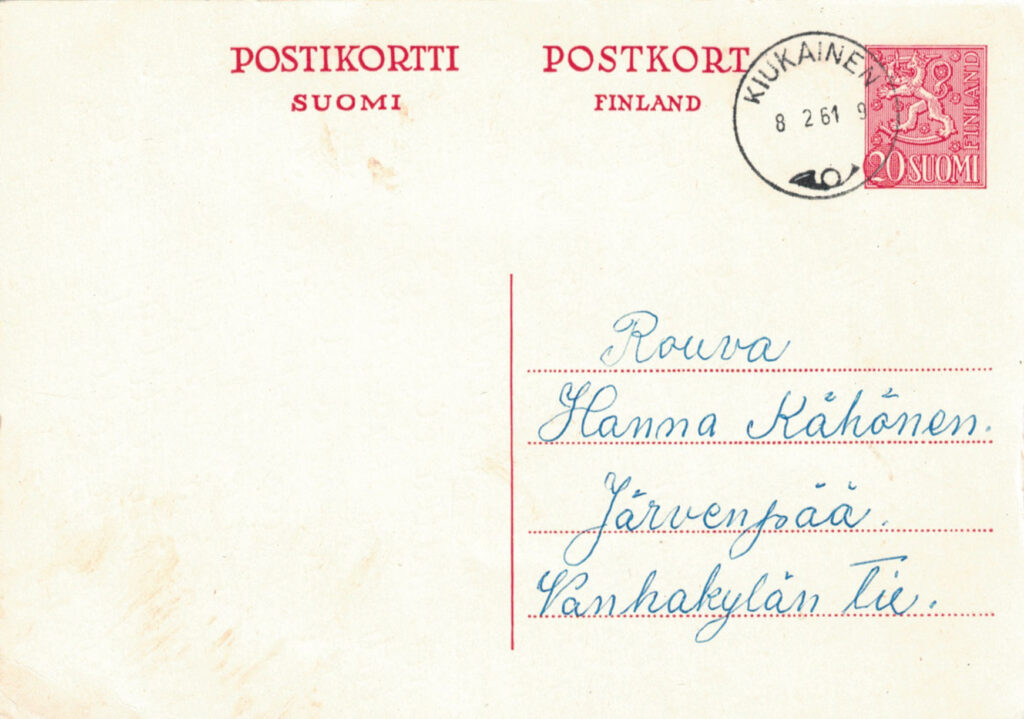 POSTIKORTTI POSTKORT
SUOMI FINLAND
KIUKAINEN
8 2 61 9
FINLAND
20 SUOMI
Rouva
Hanna Kähönen.
Järvenpää.
Vanhakylän tie.